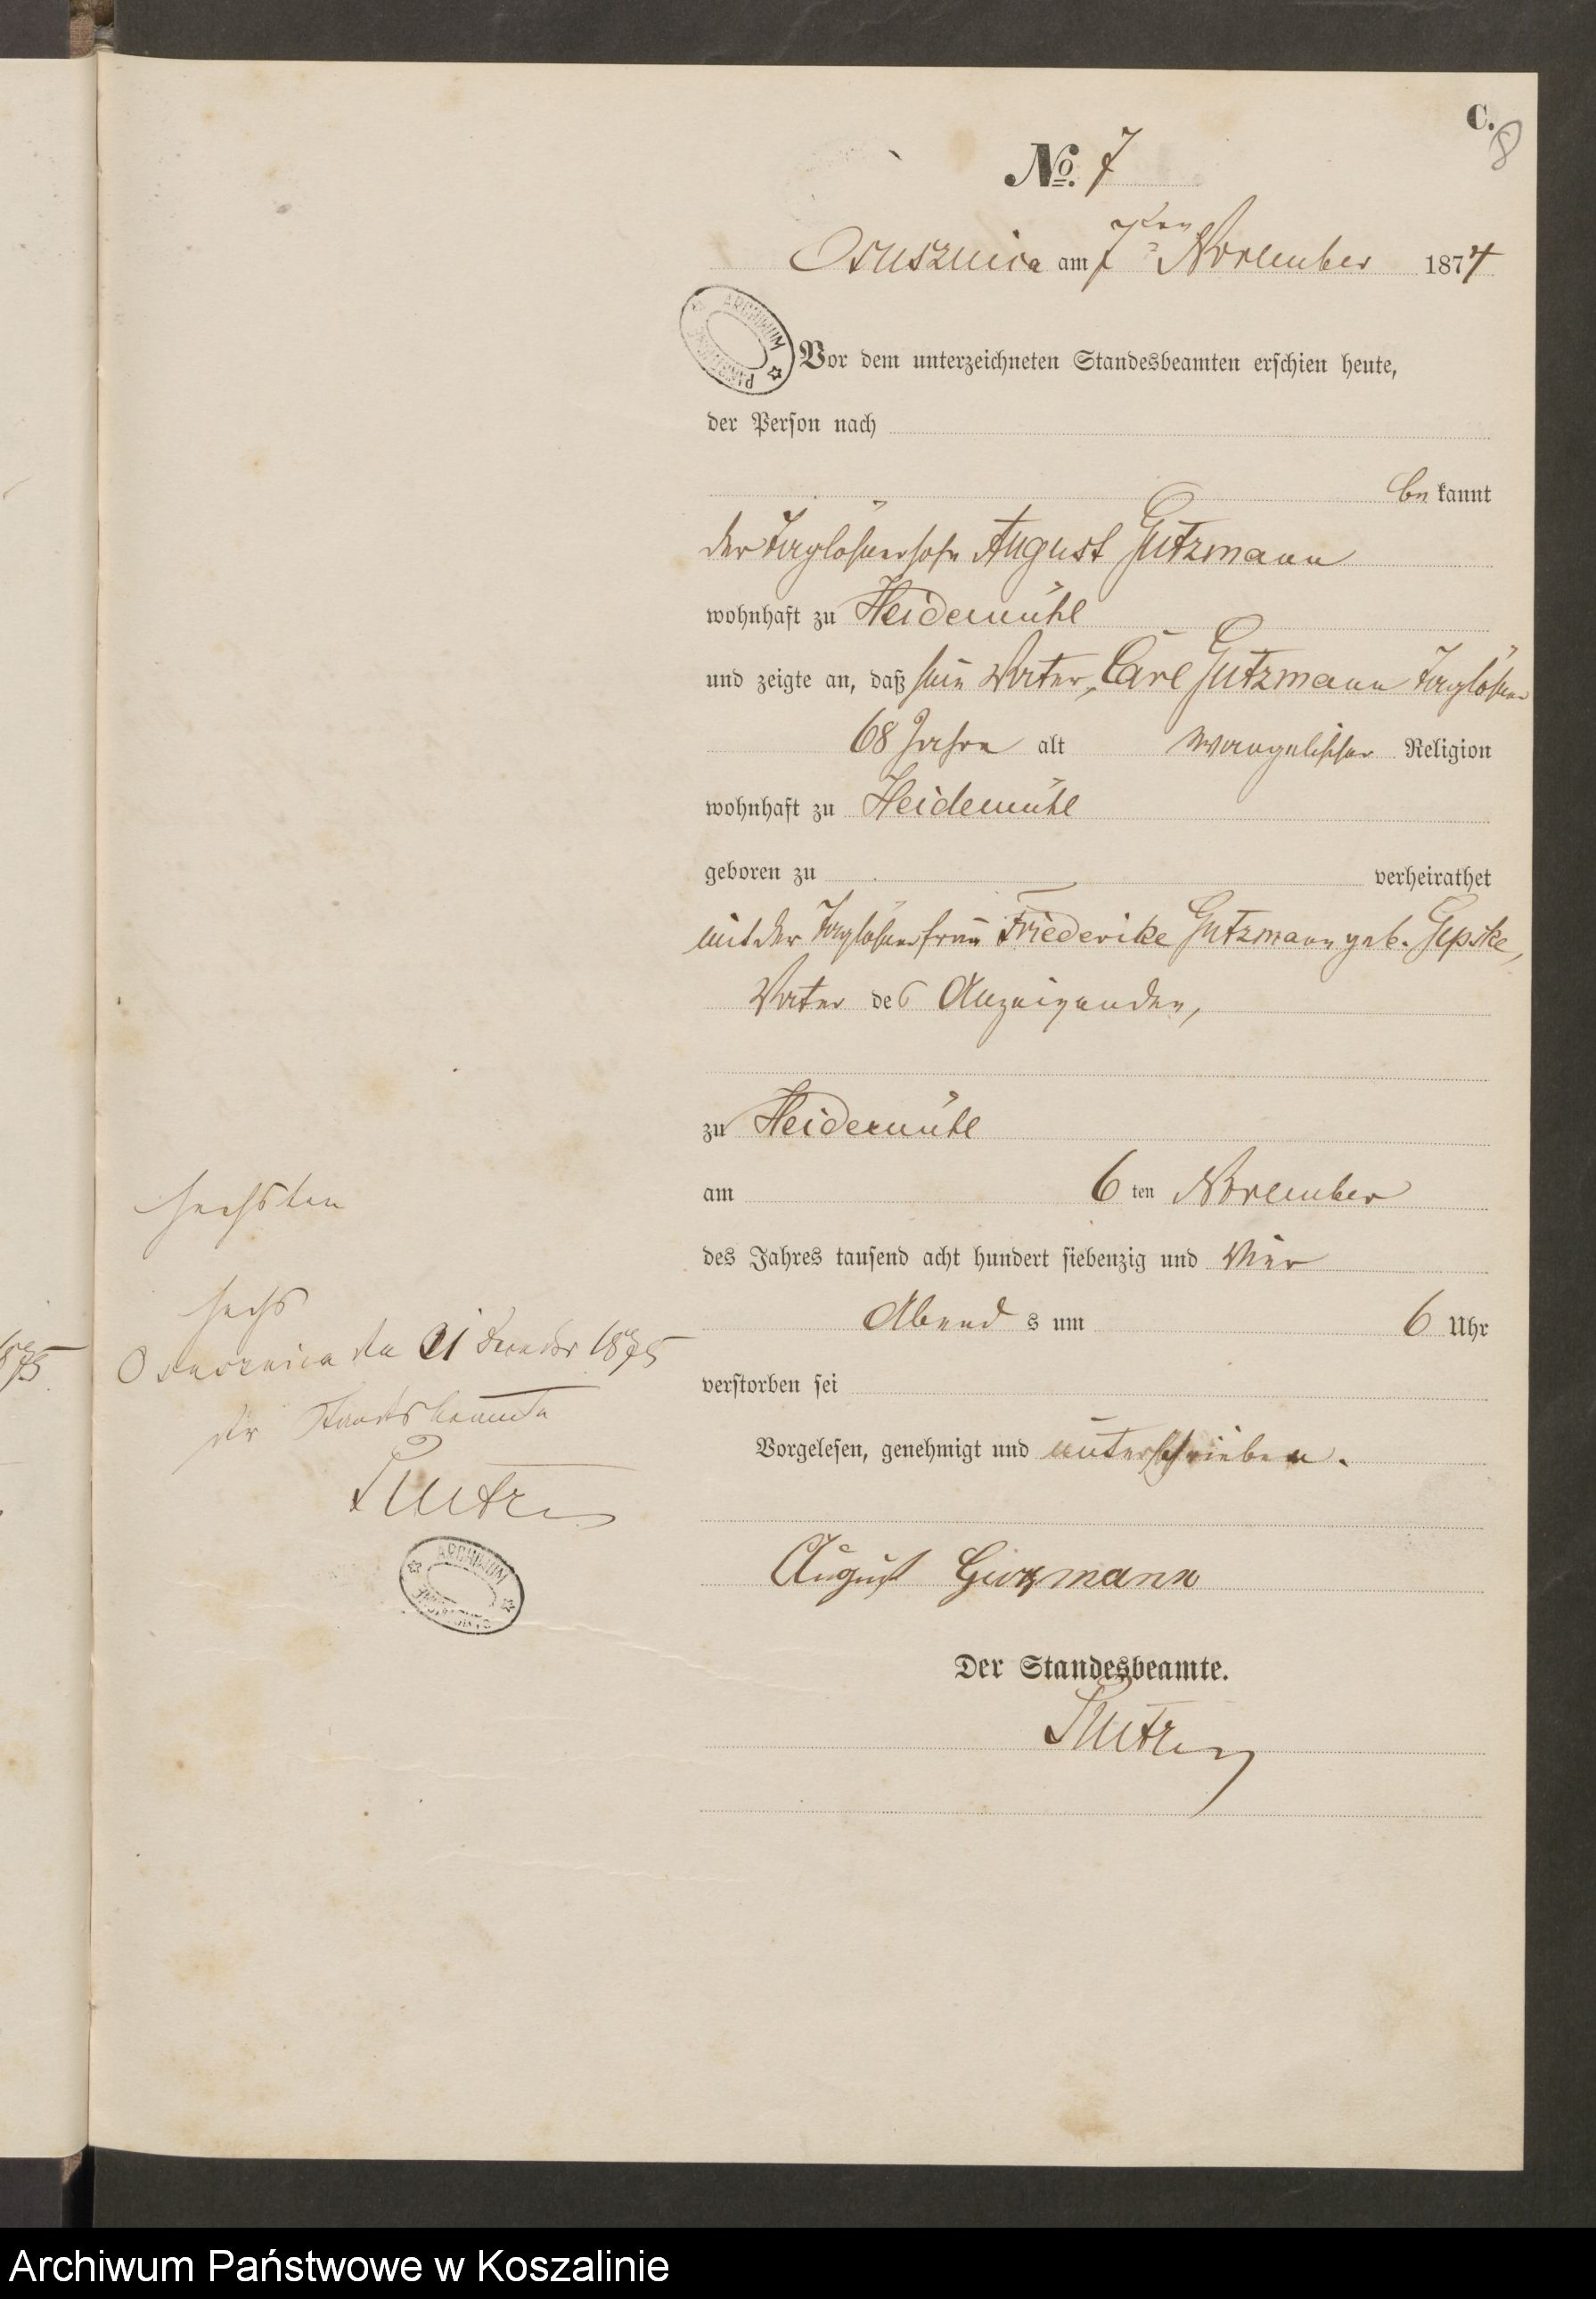 C.
8
No. 7
Osusznica am 7ten November 1874
ARCHIWUM
Vor dem unterzeichneten Standesbeamten erschien heute,
der Person nach
be kannt
der Taglöhnersohn August Gutzmann
wohnhaft zu Heidemühl
und zeigte an, daß sein Vater, Carl Gutzmann Taglöhner
68 Jahre alt evangelischer Religion
wohnhaft zu Heidemühl
geboren zu verheirathet
mit der Taglöhnerfrau Friederike Gutzmann geb. Gepske,
Vater des Anzeigenden,
zu Heidemühl
am 6 ten November
des Jahres tausend acht hundert siebenzig und Vier
Abend s um 6 Uhr
verstorben sei
Vorgelesen, genehmigt und unterschrieben.
August Guzmann
Der Standesbeamte.
sechsten
sechs
Osusznica den 21 Dezember 1875
der Standesbeamte
ARCHIWUM
Archiwum Państwowe w Koszalinie